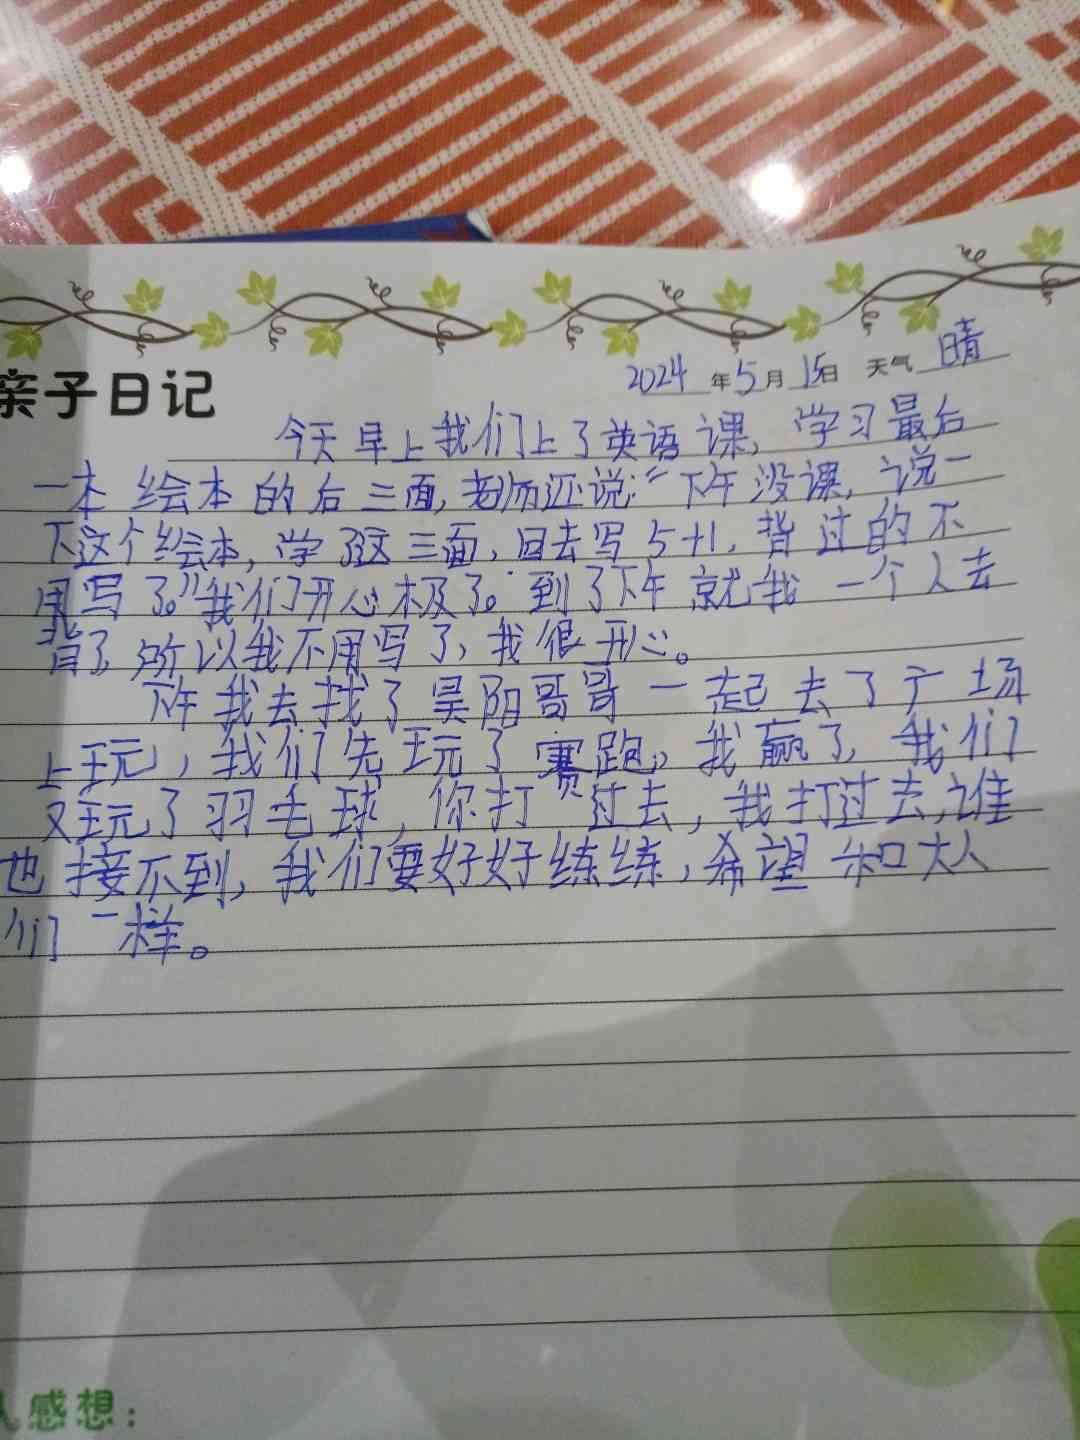 亲子日记
2024年5月15日 天气 晴
今天早上我们上了英语课，学习最后
一本绘本的后三面，老师还说：“下午没课，说一
下这个绘本，学了这三面，回去写5+1，背过的不
用写了。”我们开心极了。到了下午就我一个人去
背了，所以我不用写了，我很开心。
下午我去找了昊阳哥哥一起去了广场
上玩，我们先玩了赛跑，我赢了，我们
又玩了羽毛球，你打过去，我打过去，谁
也接不到，我们要好好练练，希望和大人
们一样。
人感想：